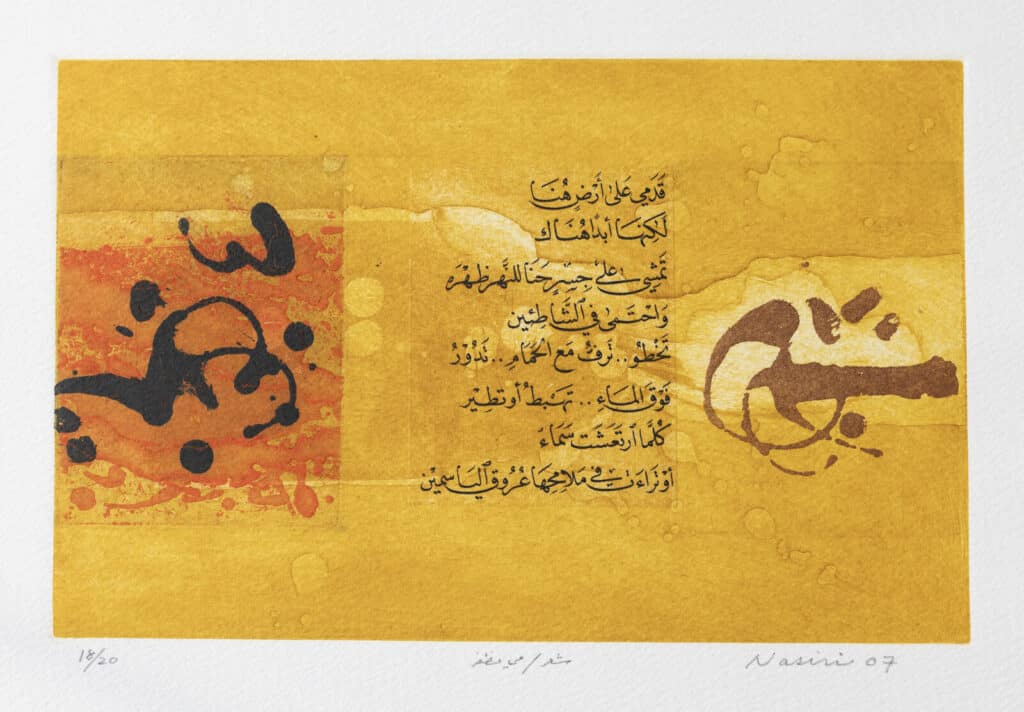 قَدَمي عَلىٰ أَرْضٍ هُنَا
لَكِنهَا أبدًا هُنَاك
تَمْشي علىٰ جِسْرٍ حَنَا للنَّهر ظهْرَه
وَاحْتمَىٰ في ٱلشَّاطِئين
تَخْطُو.. نَرفُّ مَع الحَمَامِ.. نَدُوْرُ
فَوْقَ المَاءِ.. تَهبطُ أو تطِيْر
كُلَّمَا ٱرتَعَشَت سَمَاءٌ
أوْ تَرَاءَت في مَلامِحِهَا عُرُوق ٱليَاسمِيْن
18/20
شعر / مي مظفر
Nasiri 07